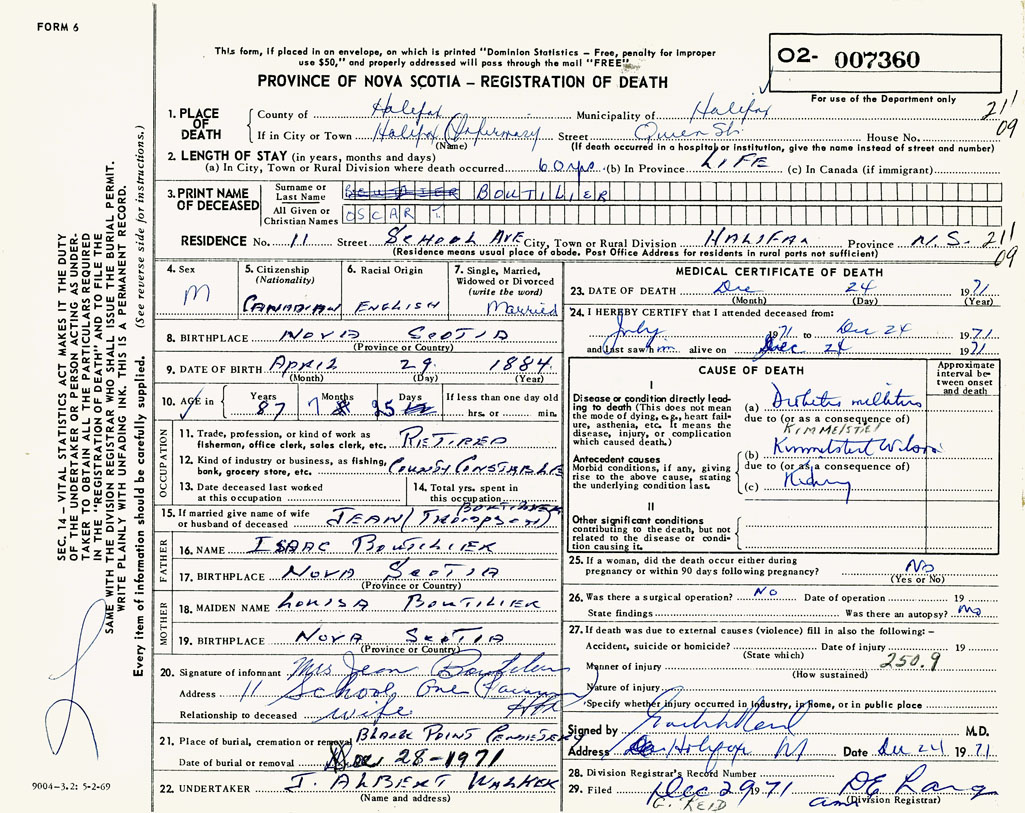 FORM 6
This form, if placed in an envelope, on which is printed "Dominion Statistics – Free, penalty for improper
use $50," and properly addressed will pass through the mail "FREE".
PROVINCE OF NOVA SCOTIA – REGISTRATION OF DEATH
O2- 007360
For use of the Department only
211
09
1. PLACE OF DEATH
County of Halifax Municipality of Halifax
If in City or Town Halifax Infirmary Street Queen St. House No.
(Name) (If death occurred in a hospital or institution, give the name instead of street and number)
2. LENGTH OF STAY (in years, months and days)
(a) In City, Town or Rural Division where death occurred 60 yrs. (b) In Province LIFE (c) In Canada (if immigrant)
3. PRINT NAME OF DECEASED
Surname or Last Name BOUTILIER
All Given or Christian Names OSCAR T.
RESIDENCE No. 11 Street SCHOOL AVE City, Town or Rural Division HALIFAX Province N.S. 211
(Residence means usual place of abode. Post Office Address for residents in rural parts not sufficient) 09
4. Sex
M
5. Citizenship
(Nationality)
CANADIAN
6. Racial Origin
ENGLISH
7. Single, Married,
Widowed or Divorced
(write the word)
Married
8. BIRTHPLACE NOVA SCOTIA
(Province or Country)
9. DATE OF BIRTH APRIL 29 1884
(Month) (Day) (Year)
10. AGE in
Years Months Days If less than one day old
87 7 25 hrs. or min.
OCCUPATION
11. Trade, profession, or kind of work as
fisherman, office clerk, sales clerk, etc. RETIRED
12. Kind of industry or business, as fishing,
bank, grocery store, etc. COUNTY CONSTABLE
13. Date deceased last worked
at this occupation
14. Total yrs. spent in
this occupation
15. If married give name of wife
or husband of deceased JEAN (THOMPSON) BOUTILIER
FATHER
16. NAME ISAAC BOUTILIER
17. BIRTHPLACE NOVA SCOTIA
(Province or Country)
MOTHER
18. MAIDEN NAME LOUISA BOUTILIER
19. BIRTHPLACE NOVA SCOTIA
(Province or Country)
20. Signature of informant Mrs Jean Boutilier
Address 11 School
Relationship to deceased wife
21. Place of burial, cremation or removal BLACK POINT CEMETERY
Date of burial or removal Dec 28-1971
22. UNDERTAKER J. ALBERT WALKER
(Name and address)
MEDICAL CERTIFICATE OF DEATH
23. DATE OF DEATH Dec 24 1971
(Month) (Day) (Year)
24. I HEREBY CERTIFY that I attended deceased from:
July 1971 to Dec 24 1971
and last saw him alive on Dec 24 1971
CAUSE OF DEATH
Approximate interval between onset and death
I
Disease or condition directly leading to death (This does not mean the mode of dying, e.g., heart failure, asthenia, etc. It means the disease, injury, or complication which caused death.)
(a) Diabetes mellitus
due to (or as a consequence of)
KIMMELSTIEL
Antecedent causes
Morbid conditions, if any, giving rise to the above cause, stating the underlying condition last.
(b) Kimmelstiel Wilson
due to (or as a consequence of)
(c) Kidney
II
Other significant conditions
contributing to the death, but not related to the disease or condition causing it.
25. If a woman, did the death occur either during
pregnancy or within 90 days following pregnancy? No
(Yes or No)
26. Was there a surgical operation? NO Date of operation 19
State findings Was there an autopsy? No
27. If death was due to external causes (violence) fill in also the following: –
Accident, suicide or homicide? Date of injury 19
(State which)
Manner of injury 250.9
(How sustained)
Nature of injury
Specify whether injury occurred in Industry, in Home, or in public place
Signed by M.D.
Address Halifax Date Dec 24 1971.
28. Division Registrar's Record Number
29. Filed Dec 29 1971 DE Lang
G. REID (Division Registrar)
SEC. 14 – VITAL STATISTICS ACT MAKES IT THE DUTY
OF THE UNDERTAKER OR PERSON ACTING AS UNDER-
TAKER TO OBTAIN ALL THE PARTICULARS REQUIRED
IN THE "REGISTRATION OF DEATH" AND TO FILE THE
SAME WITH THE DIVISION REGISTRAR WHO SHALL ISSUE THE BURIAL PERMIT.
WRITE PLAINLY WITH UNFADING INK. THIS IS A PERMANENT RECORD.
Every item of information should be carefully supplied. (See reverse side for instructions.)
9004-3.2: 5-2-69